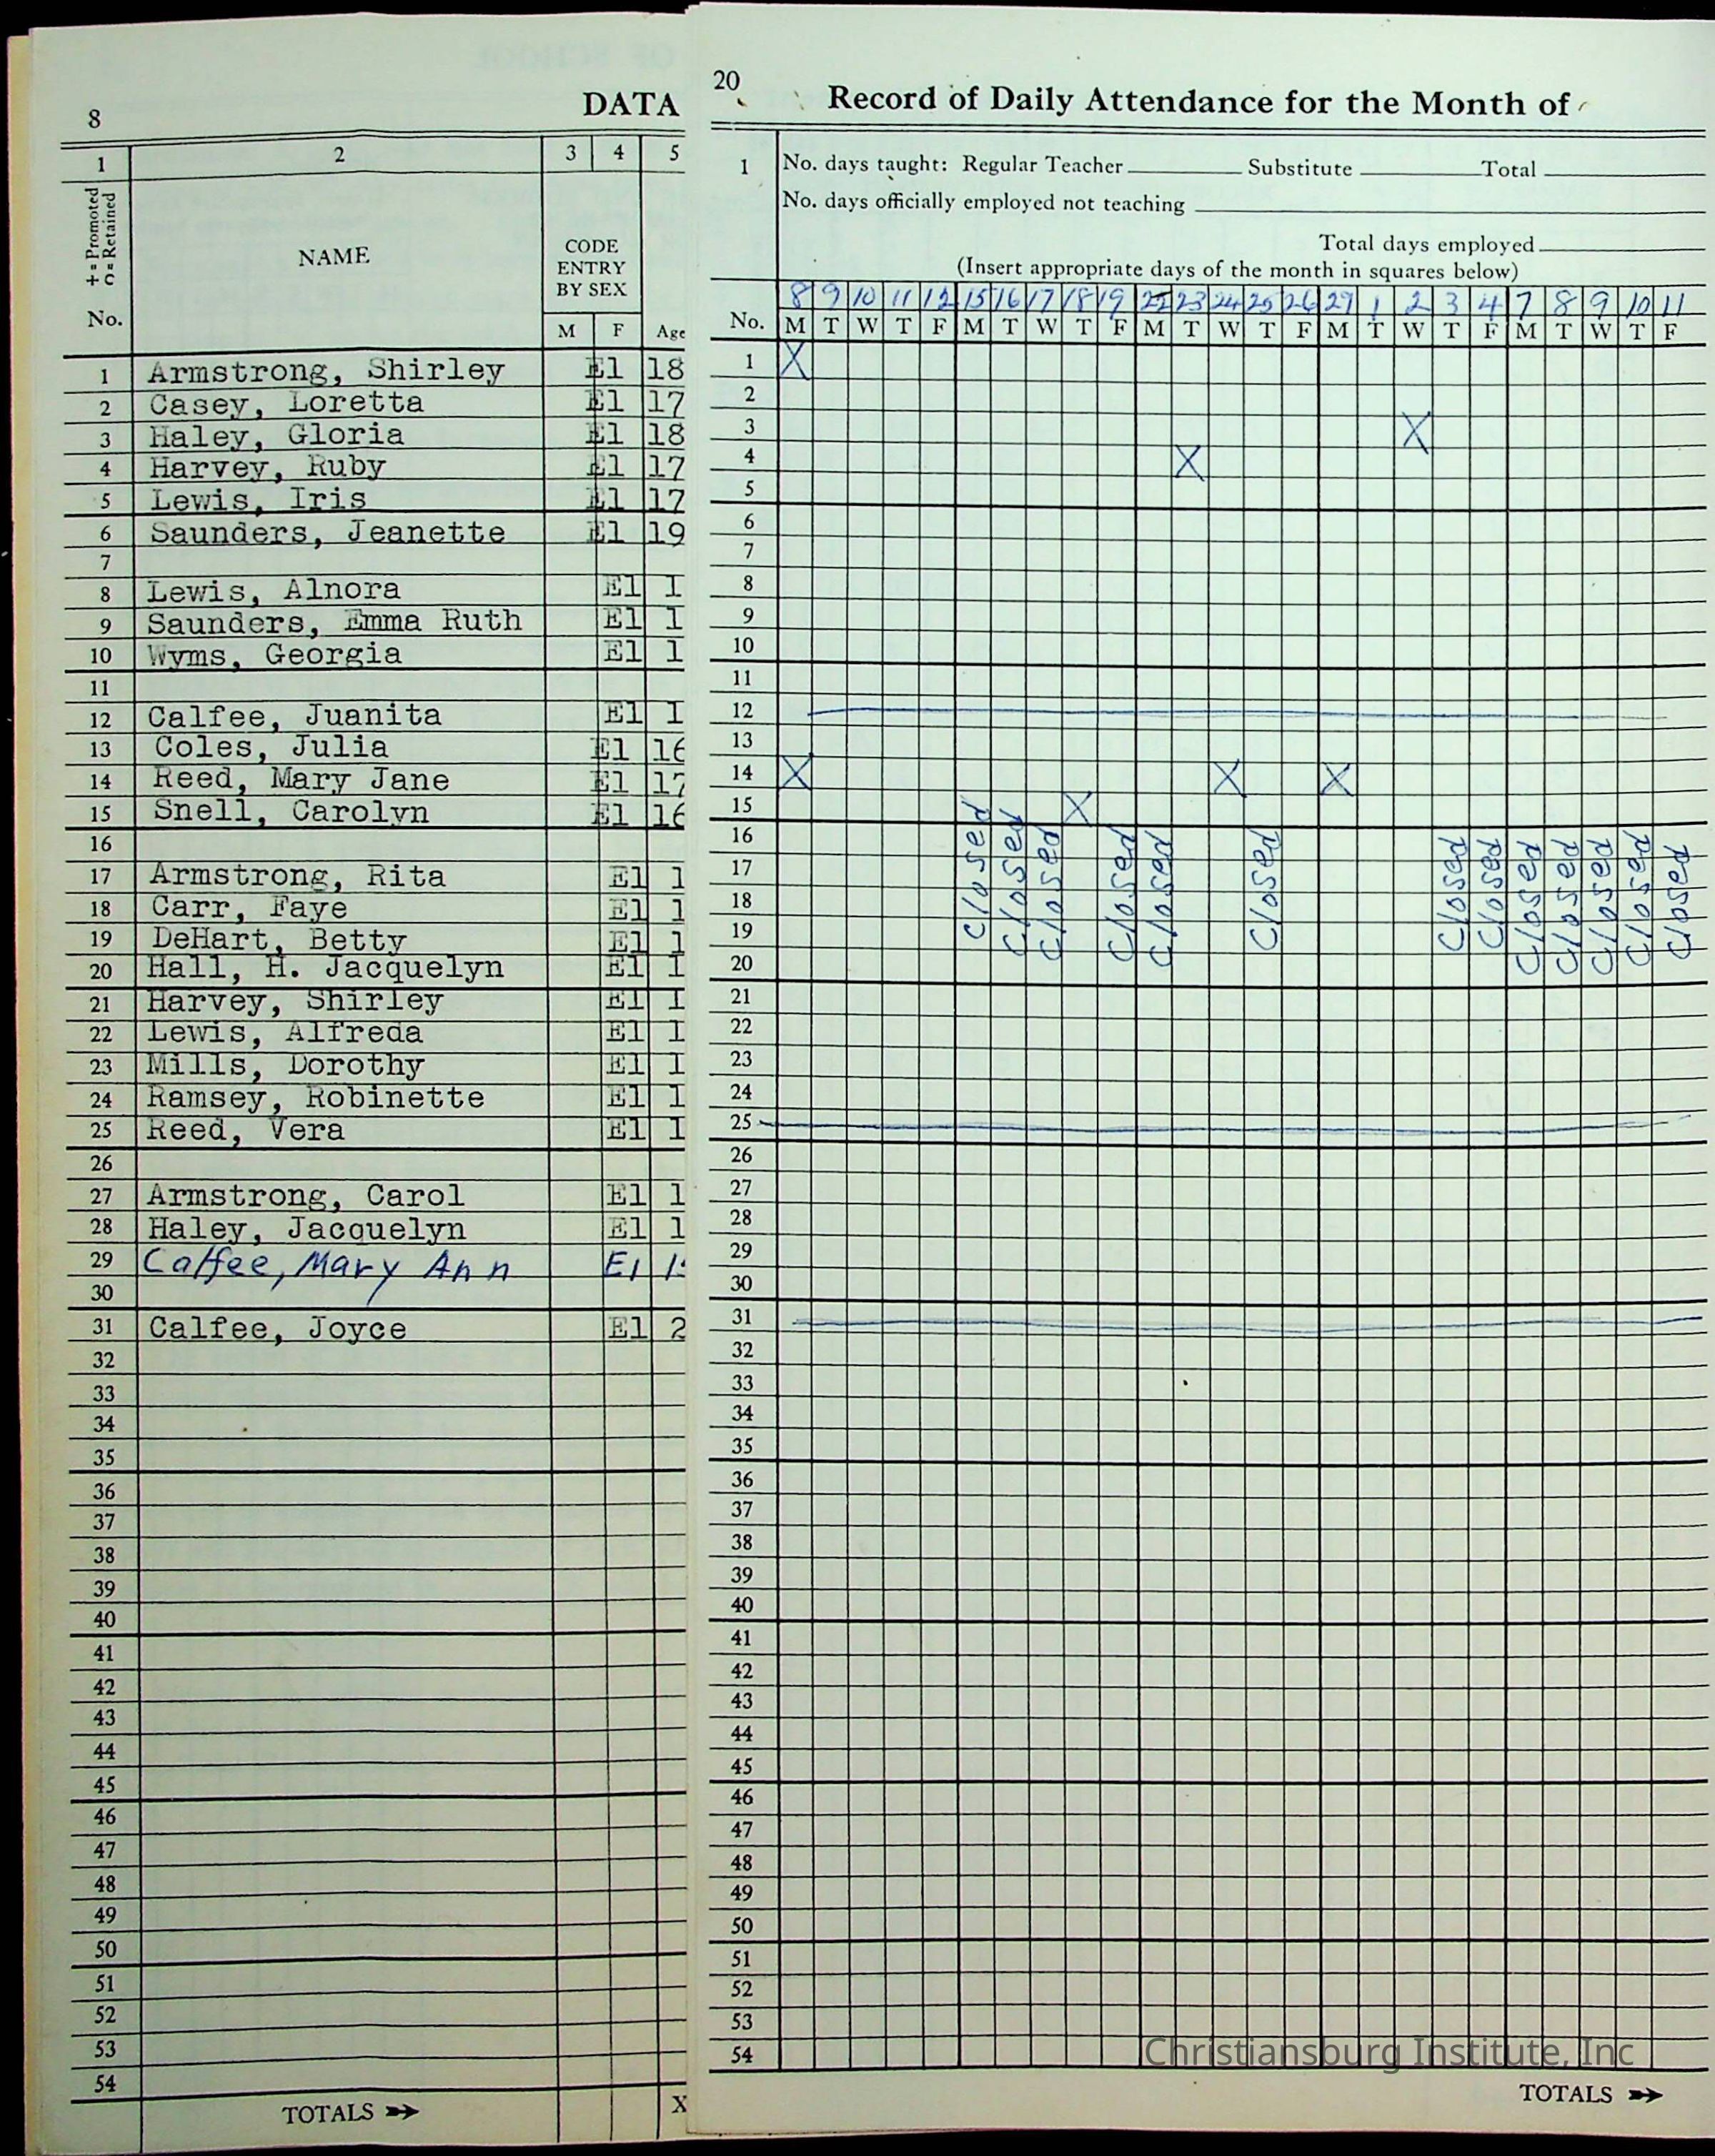 8
DATA
1 2 3 4 5
+ = Promoted
∩ = Retained
No.
NAME
CODE
ENTRY
BY SEX
M F Age
1 Armstrong, Shirley El 18
2 Casey, Loretta El 17
3 Haley, Gloria El 18
4 Harvey, Ruby El 17
5 Lewis, Iris El 17
6 Saunders, Jeanette El 19
7
8 Lewis, Alnora El 1
9 Saunders, Emma Ruth El 1
10 Wyms, Georgia El 1
11
12 Calfee, Juanita El 1
13 Coles, Julia El 16
14 Reed, Mary Jane El 17
15 Snell, Carolyn El 16
16
17 Armstrong, Rita El 1
18 Carr, Faye El 1
19 DeHart, Betty El 1
20 Hall, H. Jacquelyn El 1
21 Harvey, Shirley El 1
22 Lewis, Alfreda El 1
23 Mills, Dorothy El 1
24 Ramsey, Robinette El 1
25 Reed, Vera El 1
26
27 Armstrong, Carol El 1
28 Haley, Jacquelyn El 1
29 Calfee, Mary Ann El 1
30
31 Calfee, Joyce El 2
32
33
34
35
36
37
38
39
40
41
42
43
44
45
46
47
48
49
50
51
52
53
54
TOTALS X
20
Record of Daily Attendance for the Month of
1 No. days taught: Regular Teacher Substitute Total
No. days officially employed not teaching
Total days employed
(Insert appropriate days of the month in squares below)
8 9 10 11 12 15 16 17 18 19 22 23 24 25 26 29 1 2 3 4 7 8 9 10 11
No. M T W T F M T W T F M T W T F M T W T F M T W T F
1 X
2
3 X
4 X
5
6
7
8
9
10
11
12
13
14 X X X
15 X
Closed Closed Closed Closed Closed Closed Closed Closed Closed Closed Closed Closed Closed
16
17
18
19
20
21
22
23
24
25
26
27
28
29
30
31
32
33
34
35
36
37
38
39
40
41
42
43
44
45
46
47
48
49
50
51
52
53
54
Christiansburg Institute, Inc
TOTALS